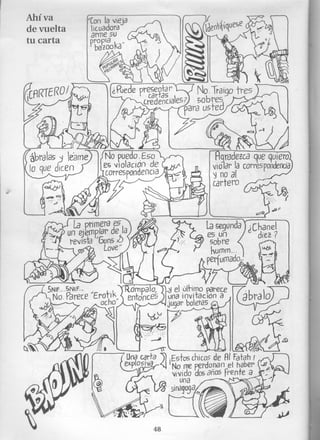 Ahí va
de vuelta
tu carta
Con la vieja
licuadora
armé su
propia
"bazooka"
RIIING
¡Identifíquese!
¡CARTERO!
¿Puede presentar
cartas
credenciales?
No. Traigo tres
sobres
para usted
¡Ábralas y léame
lo que dicen!
No puedo. Eso
es violación de
correspondencia
Agradezca que quiero
violar la correspondencia
y no al
cartero
La primera es
un ejemplar de la
revista "Guns &
Love"
La segunda
es un
sobre
humm...
perfumado
¿Chanel
diez?
Snif... Snif...
No. Parece "Erotik
ocho"
Rómpalo,
entonces
y el último parece
una invitación a
jugar boleras
¡ábralo!
¡BAOUN!
Una carta
explosiva
¡Estos chicos de Al Fatah!
No me perdonan el haber
vivido dos años frente a
una
sinagoga
48